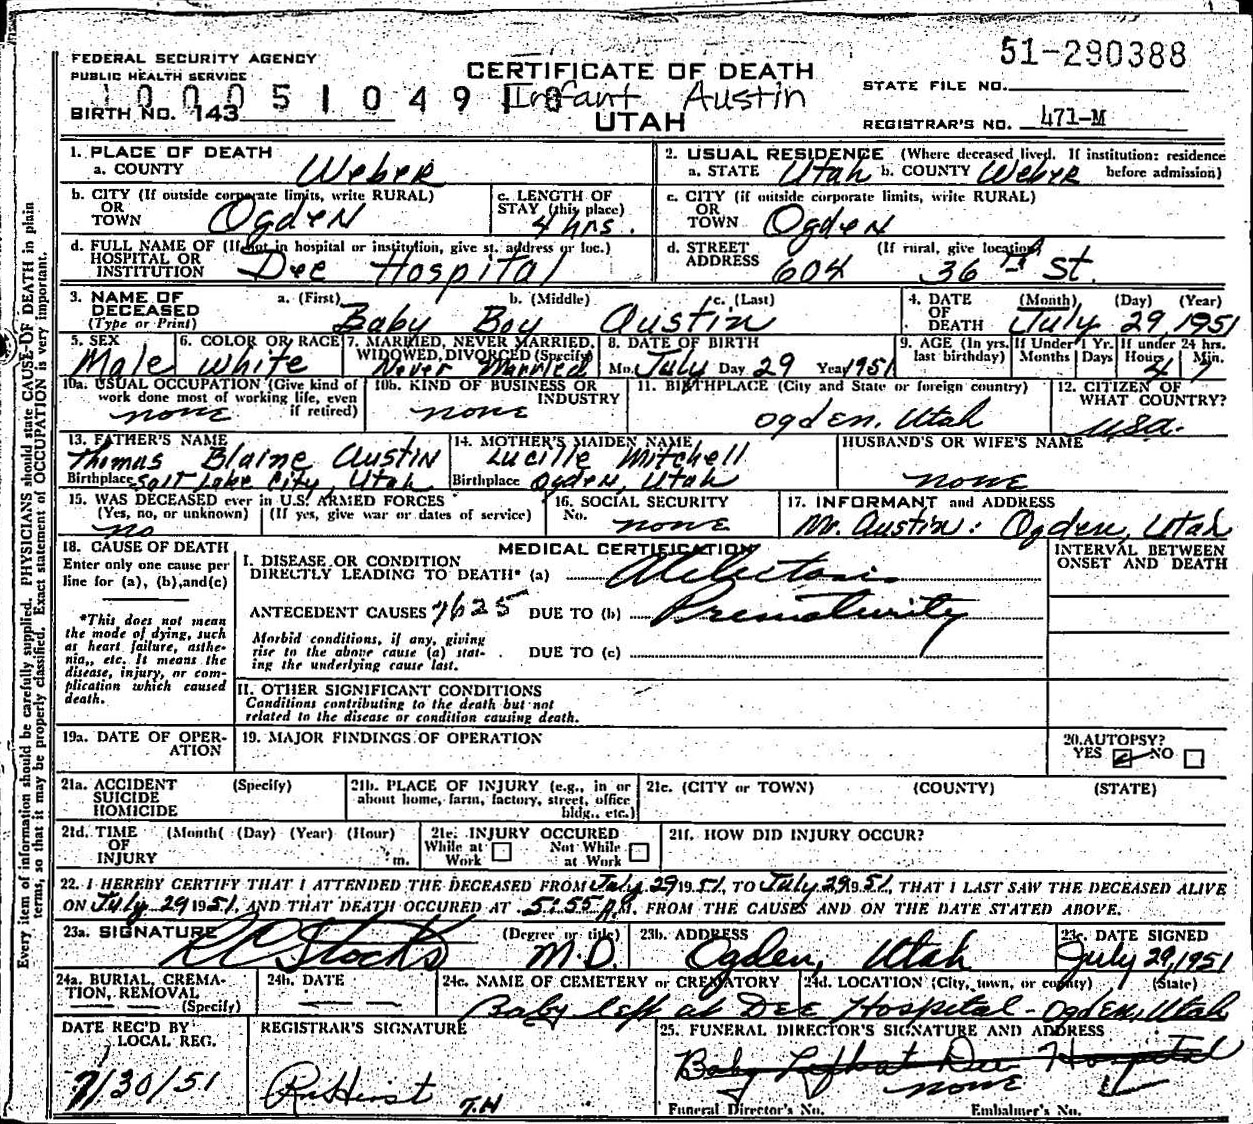 51-290388
FEDERAL SECURITY AGENCY
PUBLIC HEALTH SERVICE
CERTIFICATE OF DEATH
STATE FILE NO.
1 0 0 0 5 1 0 4 9 1 8 Infant Austin
BIRTH NO. 143
UTAH
REGISTRAR'S NO. 471-M
1. PLACE OF DEATH
a. COUNTY Weber
2. USUAL RESIDENCE (Where deceased lived. If institution: residence before admission)
a. STATE Utah b. COUNTY Weber
b. CITY (If outside corporate limits, write RURAL)
OR
TOWN Ogden
c. LENGTH OF
STAY (this place)
4 hrs.
c. CITY (if outside corporate limits, write RURAL)
OR
TOWN Ogden
d. FULL NAME OF (If not in hospital or institution, give st. address or loc.)
HOSPITAL OR
INSTITUTION Dee Hospital
d. STREET (If rural, give location)
ADDRESS 604 36th St.
3. NAME OF
DECEASED
(Type or Print)
a. (First) b. (Middle) c. (Last)
Baby Boy Austin
4. DATE
OF
DEATH
(Month) (Day) (Year)
July 29, 1951
5. SEX
Male
6. COLOR OR RACE
White
7. MARRIED, NEVER MARRIED,
WIDOWED, DIVORCED (Specify)
Never Married
8. DATE OF BIRTH
Mo. July Day 29 Year 1951
9. AGE (In yrs. last birthday)
If Under 1 Yr.
Months Days
If under 24 hrs.
Hours Min.
4 7
10a. USUAL OCCUPATION (Give kind of
work done most of working life, even
if retired)
none
10b. KIND OF BUSINESS OR
INDUSTRY
none
11. BIRTHPLACE (City and State or foreign country)
Ogden, Utah
12. CITIZEN OF
WHAT COUNTRY?
USA.
13. FATHER'S NAME
Thomas Blaine Austin
Birthplace Salt Lake City, Utah
14. MOTHER'S MAIDEN NAME
Lucille Mitchell
Birthplace Ogden, Utah
HUSBAND'S OR WIFE'S NAME
none
15. WAS DECEASED ever in U.S. ARMED FORCES
(Yes, no, or unknown) (If yes, give war or dates of service)
no
16. SOCIAL SECURITY
No. none
17. INFORMANT and ADDRESS
Mr. Austin: Ogden, Utah
18. CAUSE OF DEATH
Enter only one cause per
line for (a), (b), and (c)
*This does not mean
the mode of dying, such
as heart failure, asthe-
nia,, etc. It means the
disease, injury, or com-
plication which caused
death.
MEDICAL CERTIFICATION
I. DISEASE OR CONDITION
DIRECTLY LEADING TO DEATH* (a) Atelectasis
ANTECEDENT CAUSES 7625 DUE TO (b) Prematurity
Morbid conditions, if any, giving
rise to the above cause (a) stat-
ing the underlying cause last.
DUE TO (c)
II. OTHER SIGNIFICANT CONDITIONS
Conditions contributing to the death but not
related to the disease or condition causing death.
INTERVAL BETWEEN
ONSET AND DEATH
19a. DATE OF OPER-
ATION
19. MAJOR FINDINGS OF OPERATION
20. AUTOPSY?
YES NO
21a. ACCIDENT (Specify)
SUICIDE
HOMICIDE
21b. PLACE OF INJURY (e.g., in or
about home, farm, factory, street, office
bldg., etc.)
21c. (CITY or TOWN) (COUNTY) (STATE)
21d. TIME (Month( (Day) (Year) (Hour)
OF
INJURY m.
21e. INJURY OCCURED
While at Work Not While at Work
21f. HOW DID INJURY OCCUR?
22. I HEREBY CERTIFY THAT I ATTENDED THE DECEASED FROM July 29 1951, TO July 29 1951, THAT I LAST SAW THE DECEASED ALIVE
ON July 29 1951, AND THAT DEATH OCCURED AT 5:55 P.M. FROM THE CAUSES AND ON THE DATE STATED ABOVE.
23a. SIGNATURE (Degree or title)
Stocks M.D.
23b. ADDRESS
Ogden, Utah
23c. DATE SIGNED
July 29, 1951
24a. BURIAL, CREMA-
TION, REMOVAL
(Specify)
24b. DATE
24c. NAME OF CEMETERY or CREMATORY
24d. LOCATION (City, town, or county) (State)
Baby left at Dee Hospital - Ogden, Utah
DATE REC'D BY
LOCAL REG.
7/30/51
REGISTRAR'S SIGNATURE
Hirst T.H
25. FUNERAL DIRECTOR'S SIGNATURE AND ADDRESS
Baby Left at Dee Hospital
none
Funeral Director's No. Embalmer's No.
Every item of information should be carefully supplied. PHYSICIANS should state CAUSE OF DEATH in plain
terms, so that it may be properly classified. Exact statement of OCCUPATION is very important.